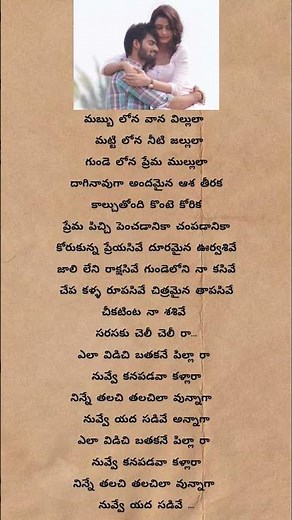 మబ్బు లోన వాన విల్లులా
మట్టి లోన నీటి జల్లులా
గుండె లోన ప్రేమ ముల్లులా
దాగినావుగా అందమైన ఆశ తీరక
కాల్చుతోంది కొంటె కోరిక
ప్రేమ పిచ్చి పెంచడానికా చంపడానికా
కోరుకున్న ప్రేయసివే దూరమైన ఊర్వశివే
జాలి లేని రాక్షసివే గుండెలోని నా కసివే
చేప కళ్ళ రూపసివే చిత్రమైన తాపసివే
చీకటింట నా శశివే
సరసకు చెలీ చెలీ రా...
ఎలా విడిచి బతకనే పిల్లా రా
నువ్వే కనపడవా కళ్లారా
నిన్నే తలచి తలచిలా వున్నాగా
నువ్వే యద సడివే అన్నాగా
ఎలా విడిచి బతకనే పిల్లా రా
నువ్వే కనపడవా కళ్లారా
నిన్నే తలచి తలచిలా వున్నాగా
నువ్వే యద సడివే ...